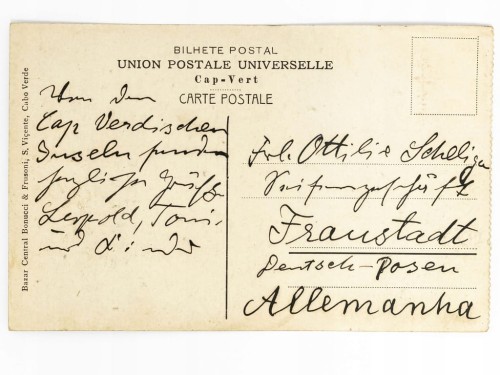 BILHETE POSTAL
UNION POSTALE UNIVERSELLE
Cap-Vert
CARTE POSTALE
Bazar Central Bonucci & Frusoni, S. Viçente, Cabo Verde
Von den
Cap Verdischen
Inseln senden
herzliche Grüße
Leopold, Toni
und Kinder
Frl. Ottilie Scheliga
Seifengeschäft
Fraustadt
Deutsch-Posen
Allemanha